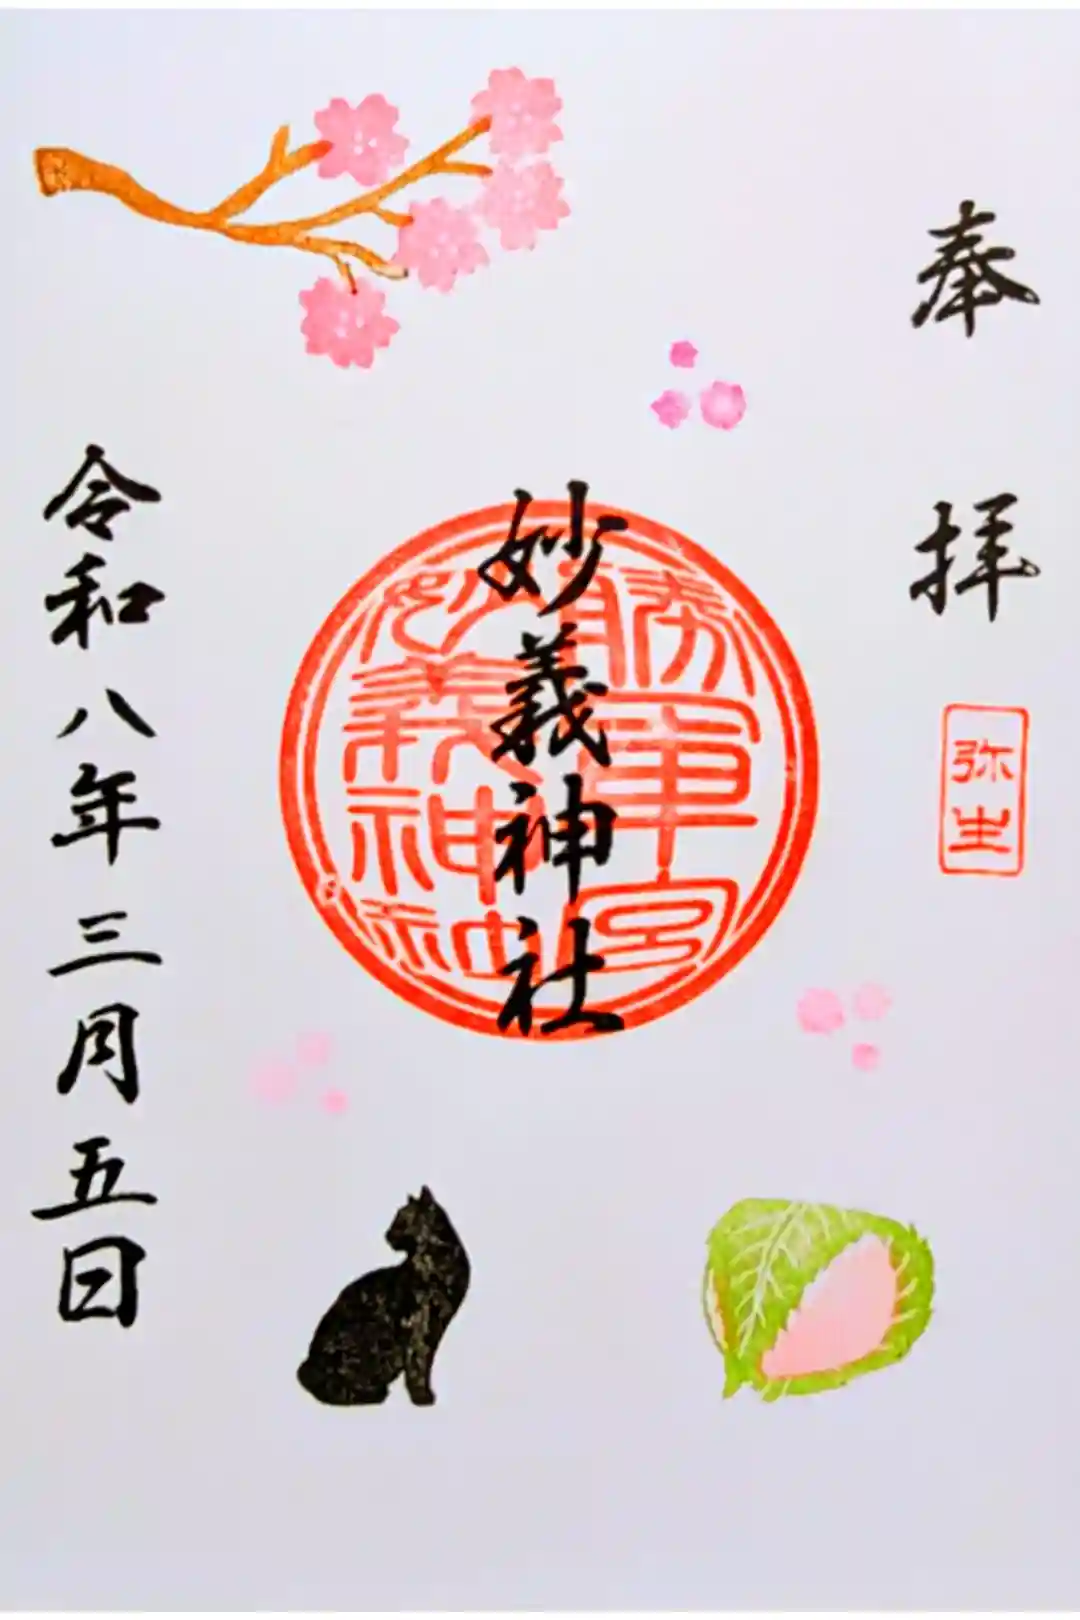 奉拝
弥生
勝軍宮
妙義神社
妙義神社
令和八年三月五日